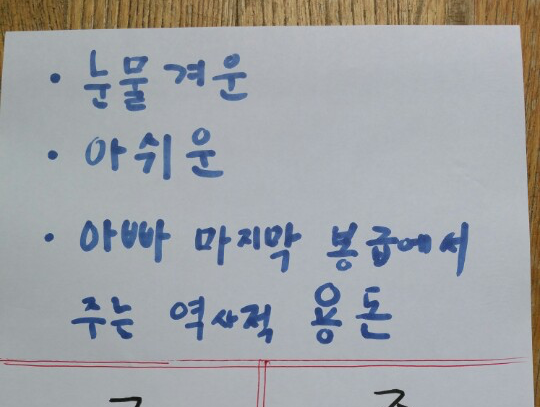 • 눈물겨운
• 아쉬운
• 아빠 마지막 봉급에서
주는 역사적 용돈